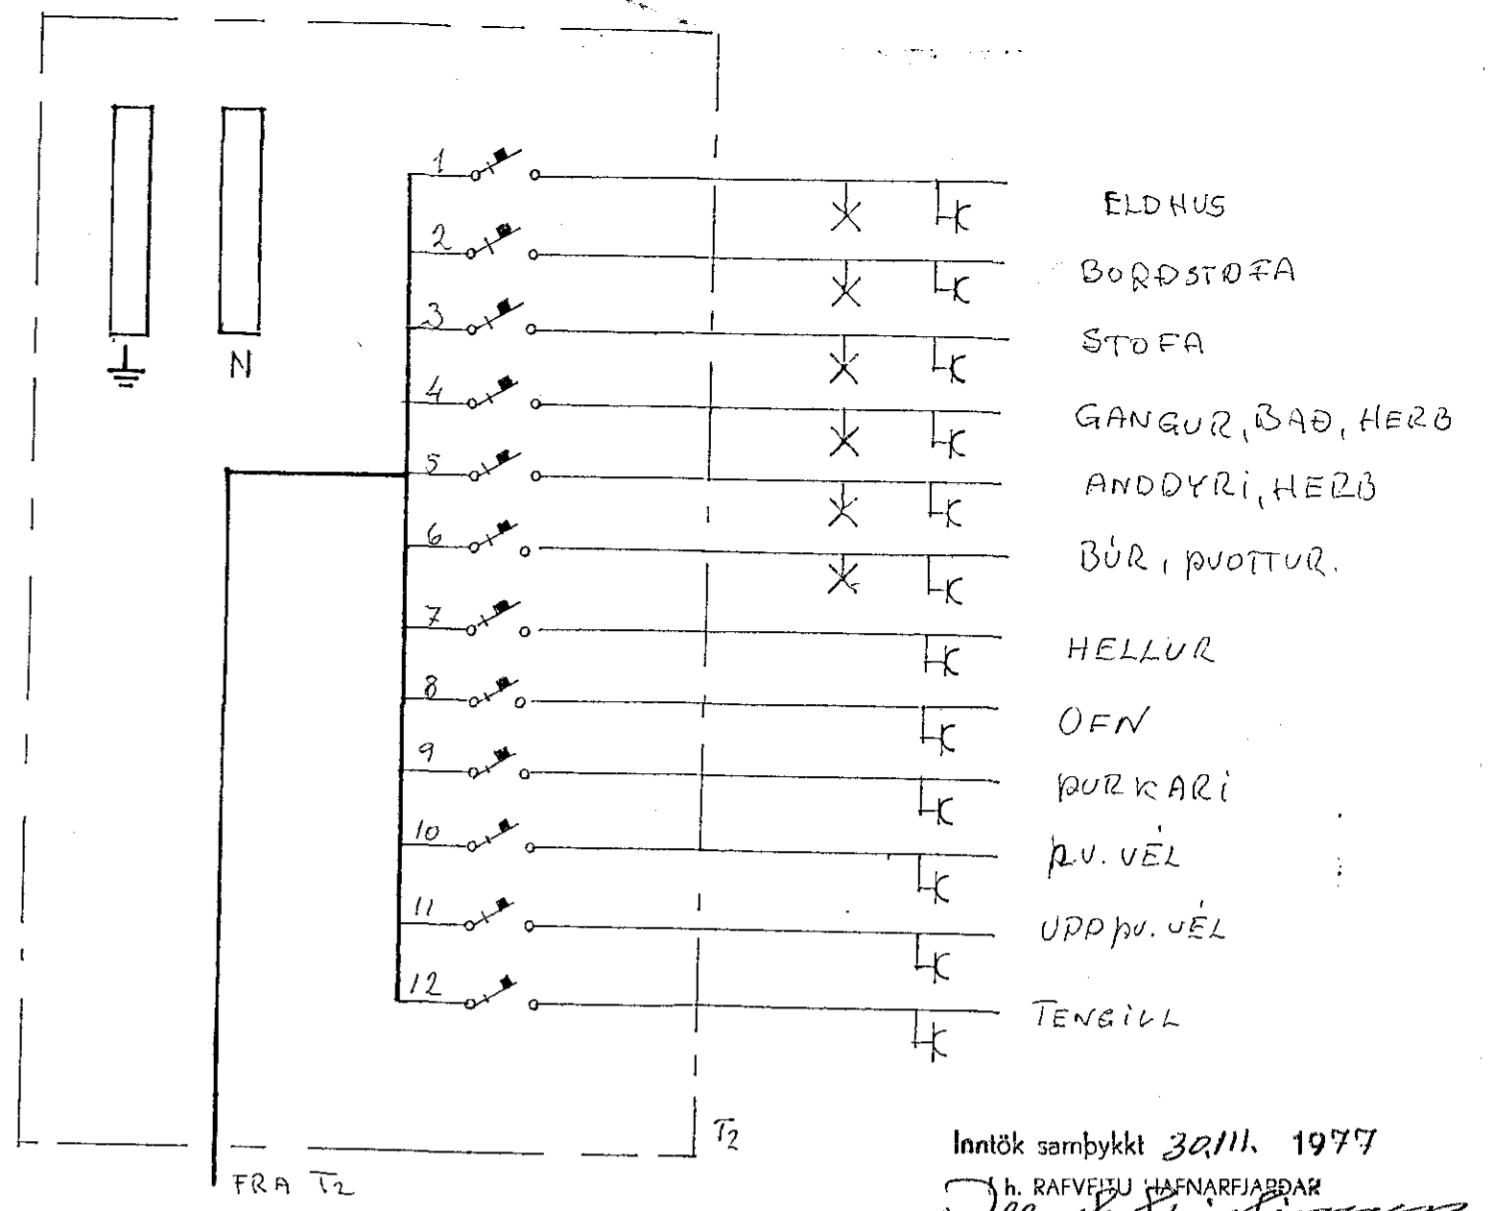 1 ELDHUS
2 BORÐSTOFA
3 STOFA
4 GANGUR, BAÐ, HERB
5 ANDDYRi, HERB
6 BÚR, ÞVOTTUR.
7 HELLUR
8 OFN
9 ÞURKARi
10 ÞV. VÉL
11 UPPÞV. VÉL
12 TENGiLL
N
T2
FRA T2
Inntök samþykkt 30/11. 1977
h. RAFVEITU HAFNARFJARÐAR